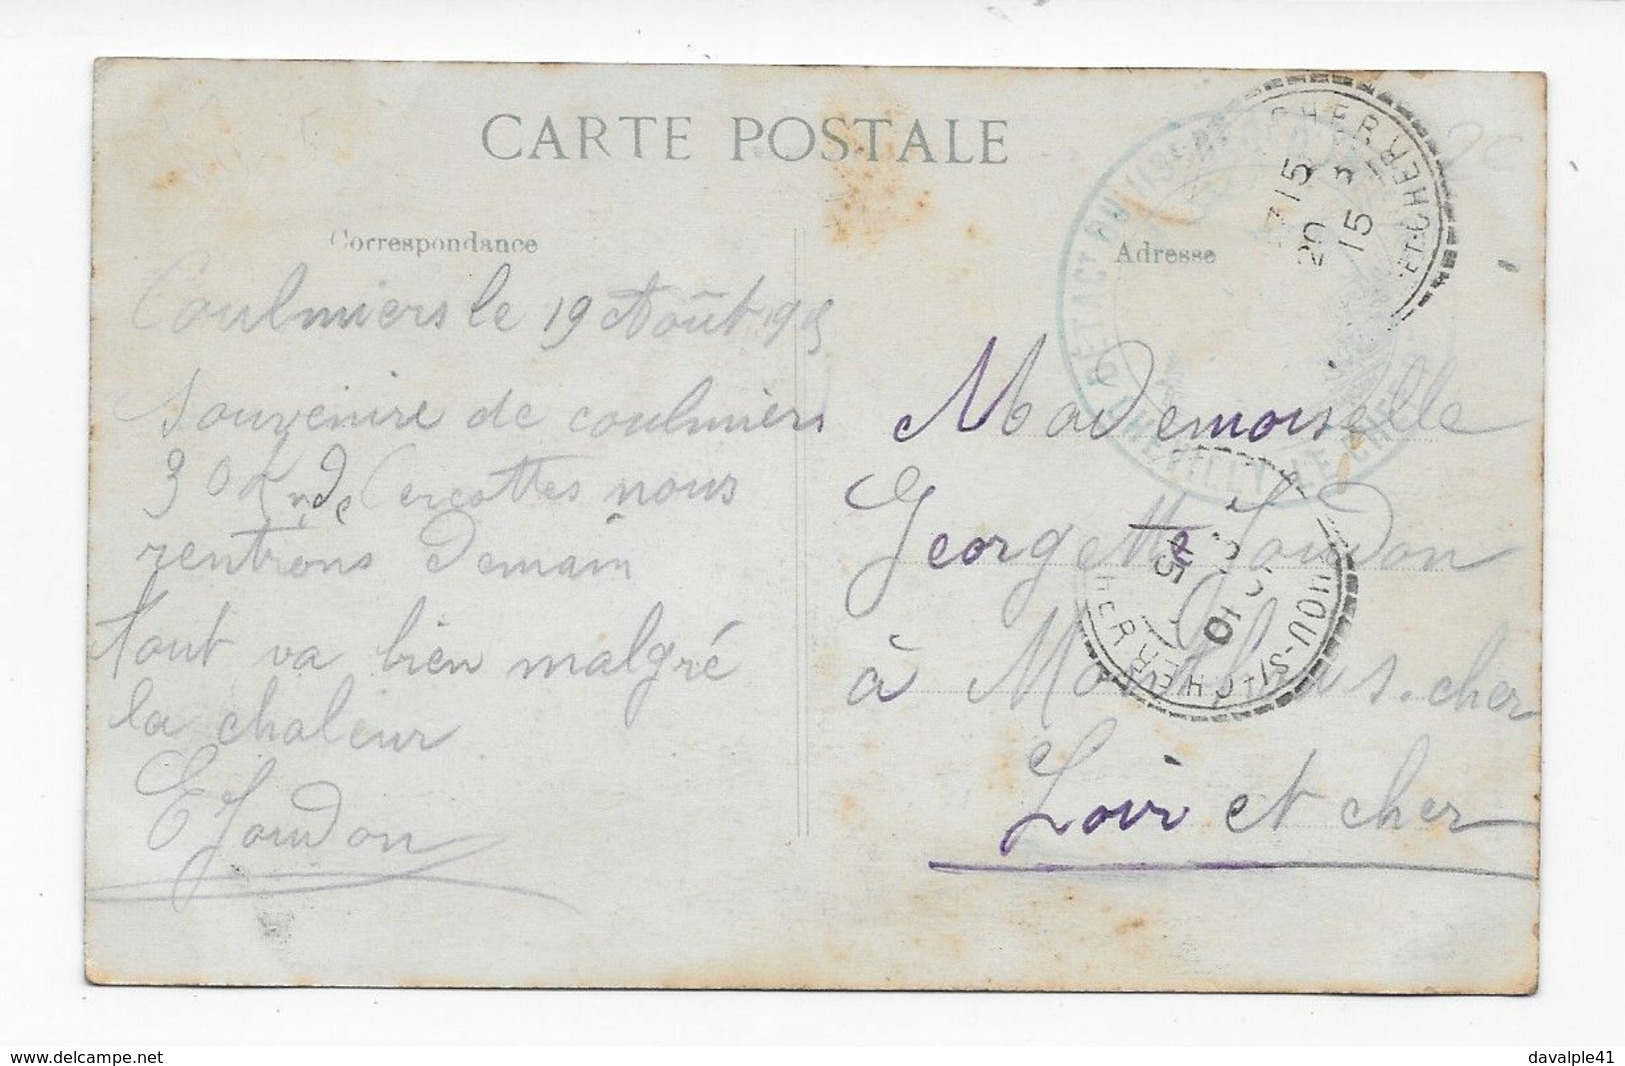 CARTE POSTALE
Correspondance
Coulmiers le 19 Août 1915
Souvenire de coulmiers
30 K de Cercottes nous
rentrons Demain
tout va bien malgré
la chaleur
E Joudon
Adresse
Mademoiselle
Georgette Joudon
à s. cher
Loir et cher
ET CHER
15
20
15
10
15
CHER
www.delcampe.net
davalple41